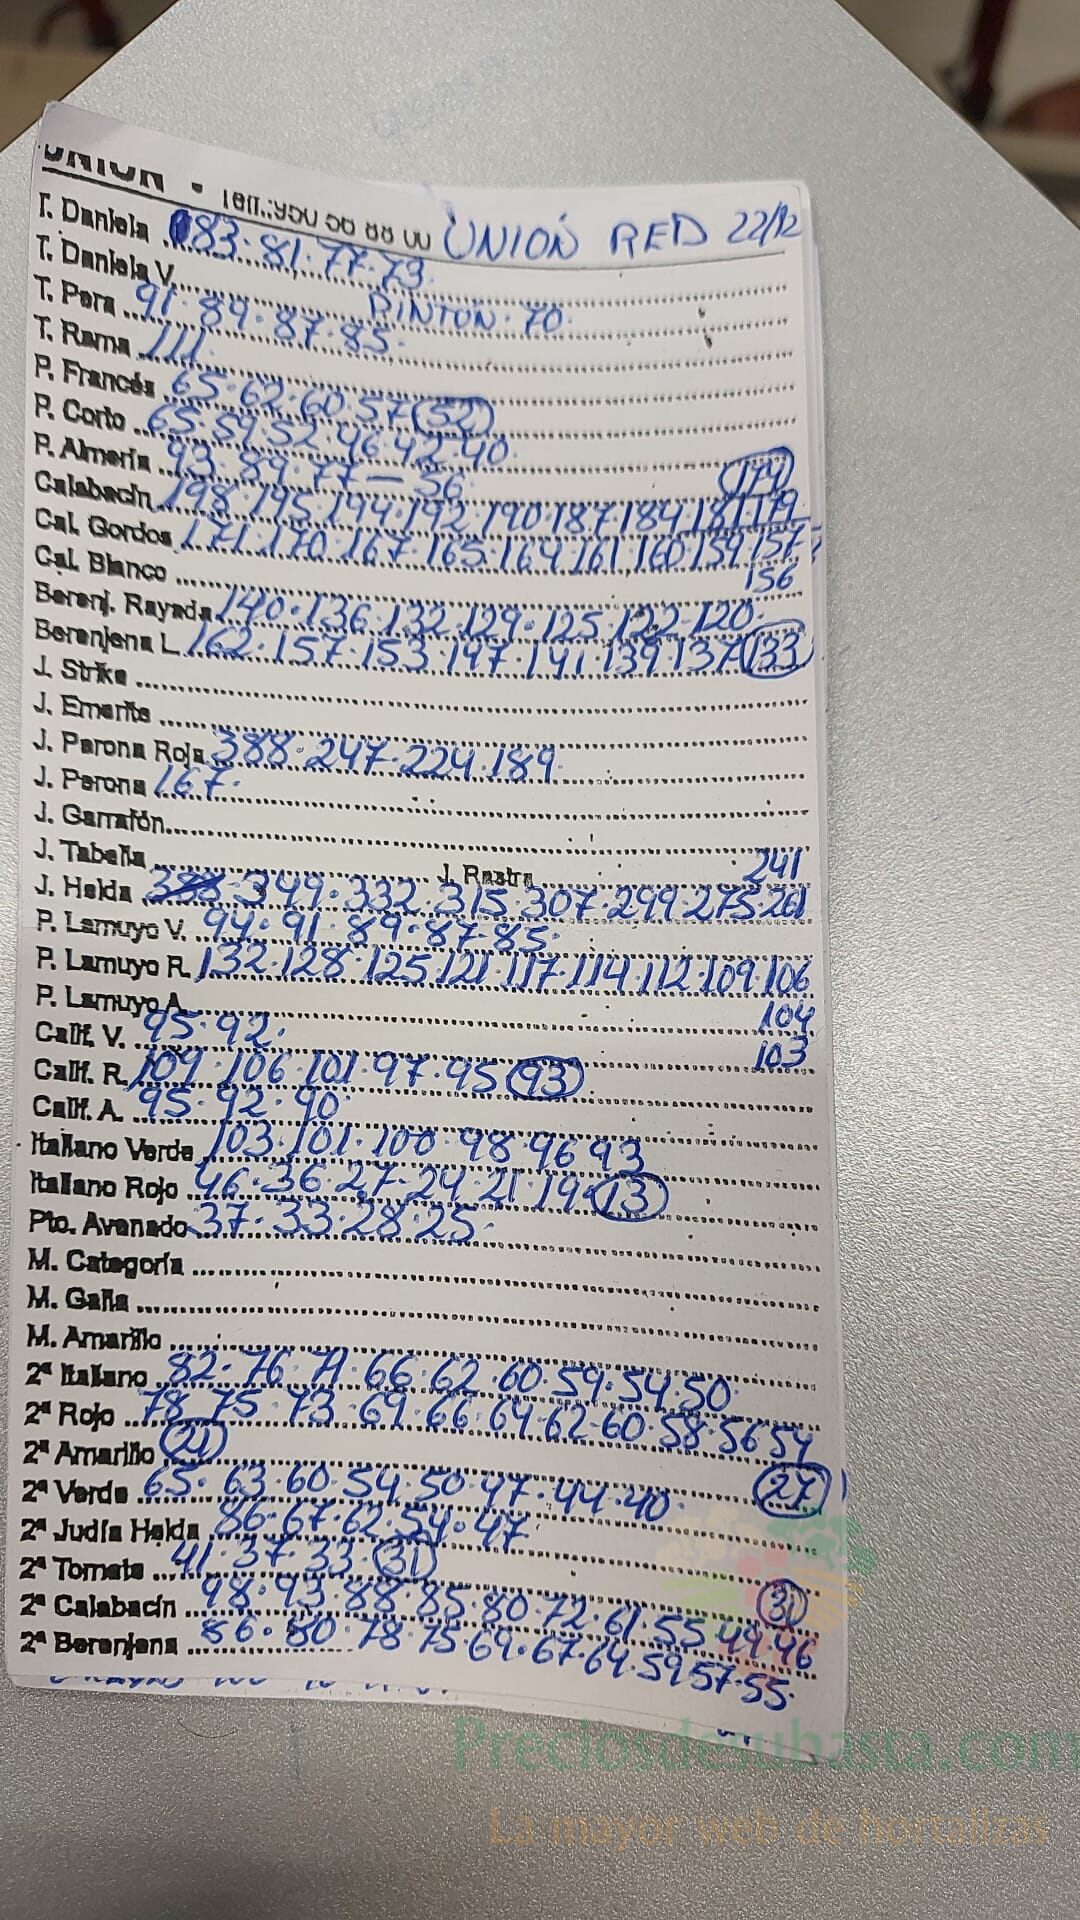 UNION - Telf.: 950 56 88 00 UNIÓN RED 22/12
T. Daniela 83·81·77·73·
T. Daniela V. PINTON·70·
T. Pera 91·89·87·85·
T. Rama 111·
P. Francés 65·62·60·57 (52)
P. Corto 65·59·52·46·42·40·
P. Almería 93·89·77—56·
(174)
Calabacín 198·195·194·192·190·187·184·181·179
Cal. Gordos 171·170·167·165·164·161·160·159·157
156
Cal. Blanco
Berenj. Rayada 140·136·132·129·125·122·120·
Berenjena L. 162·157·153·147·141·139·137 (133)
J. Strike
J. Emerite
J. Perona Roja 388·247·224·189·
J. Perona 167·
J. Garrafón
J. Tabella J. Rastra 241
J. Helda 349·332·315·307·299·275·261
P. Lamuyo V. 94·91·89·87·85·
P. Lamuyo R. 132·128·125·121·117·114·112·109·106
104
103
P. Lamuyo A.
Calif. V. 95·92·
Calif. R. 109·106·101·97·95 (93)
Calif. A. 95·92·90
Italiano Verde 103·101·100·98·96·93
Italiano Rojo 46·36·27·24·21·19·(13)
Pto. Avanado 37·33·28·25·
M. Categoría
M. Galia
M. Amarillo
2ª Italiano 82·76·71·66·62·60·59·54·50·
2ª Rojo 78·75·73·69·66·64·62·60·58·56·54
(27)
2ª Amarillo (21)
2ª Verde 65·63·60·54·50·47·44·40·
2ª Judía Helda 86·67·62·54·47
2ª Tomate 41·37·33·(31)
(31)
2ª Calabacín 98·93·88·85·80·72·61·55·49·46
2ª Berenjena 86·80·78·75·69·67·64·59·57·55·
Preciosdesubasta.com
La mayor web de hortalizas